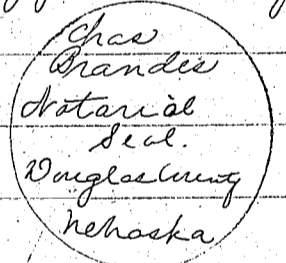 Chas
Brandes
Notarial
Seal.
Douglas County
Nebraska